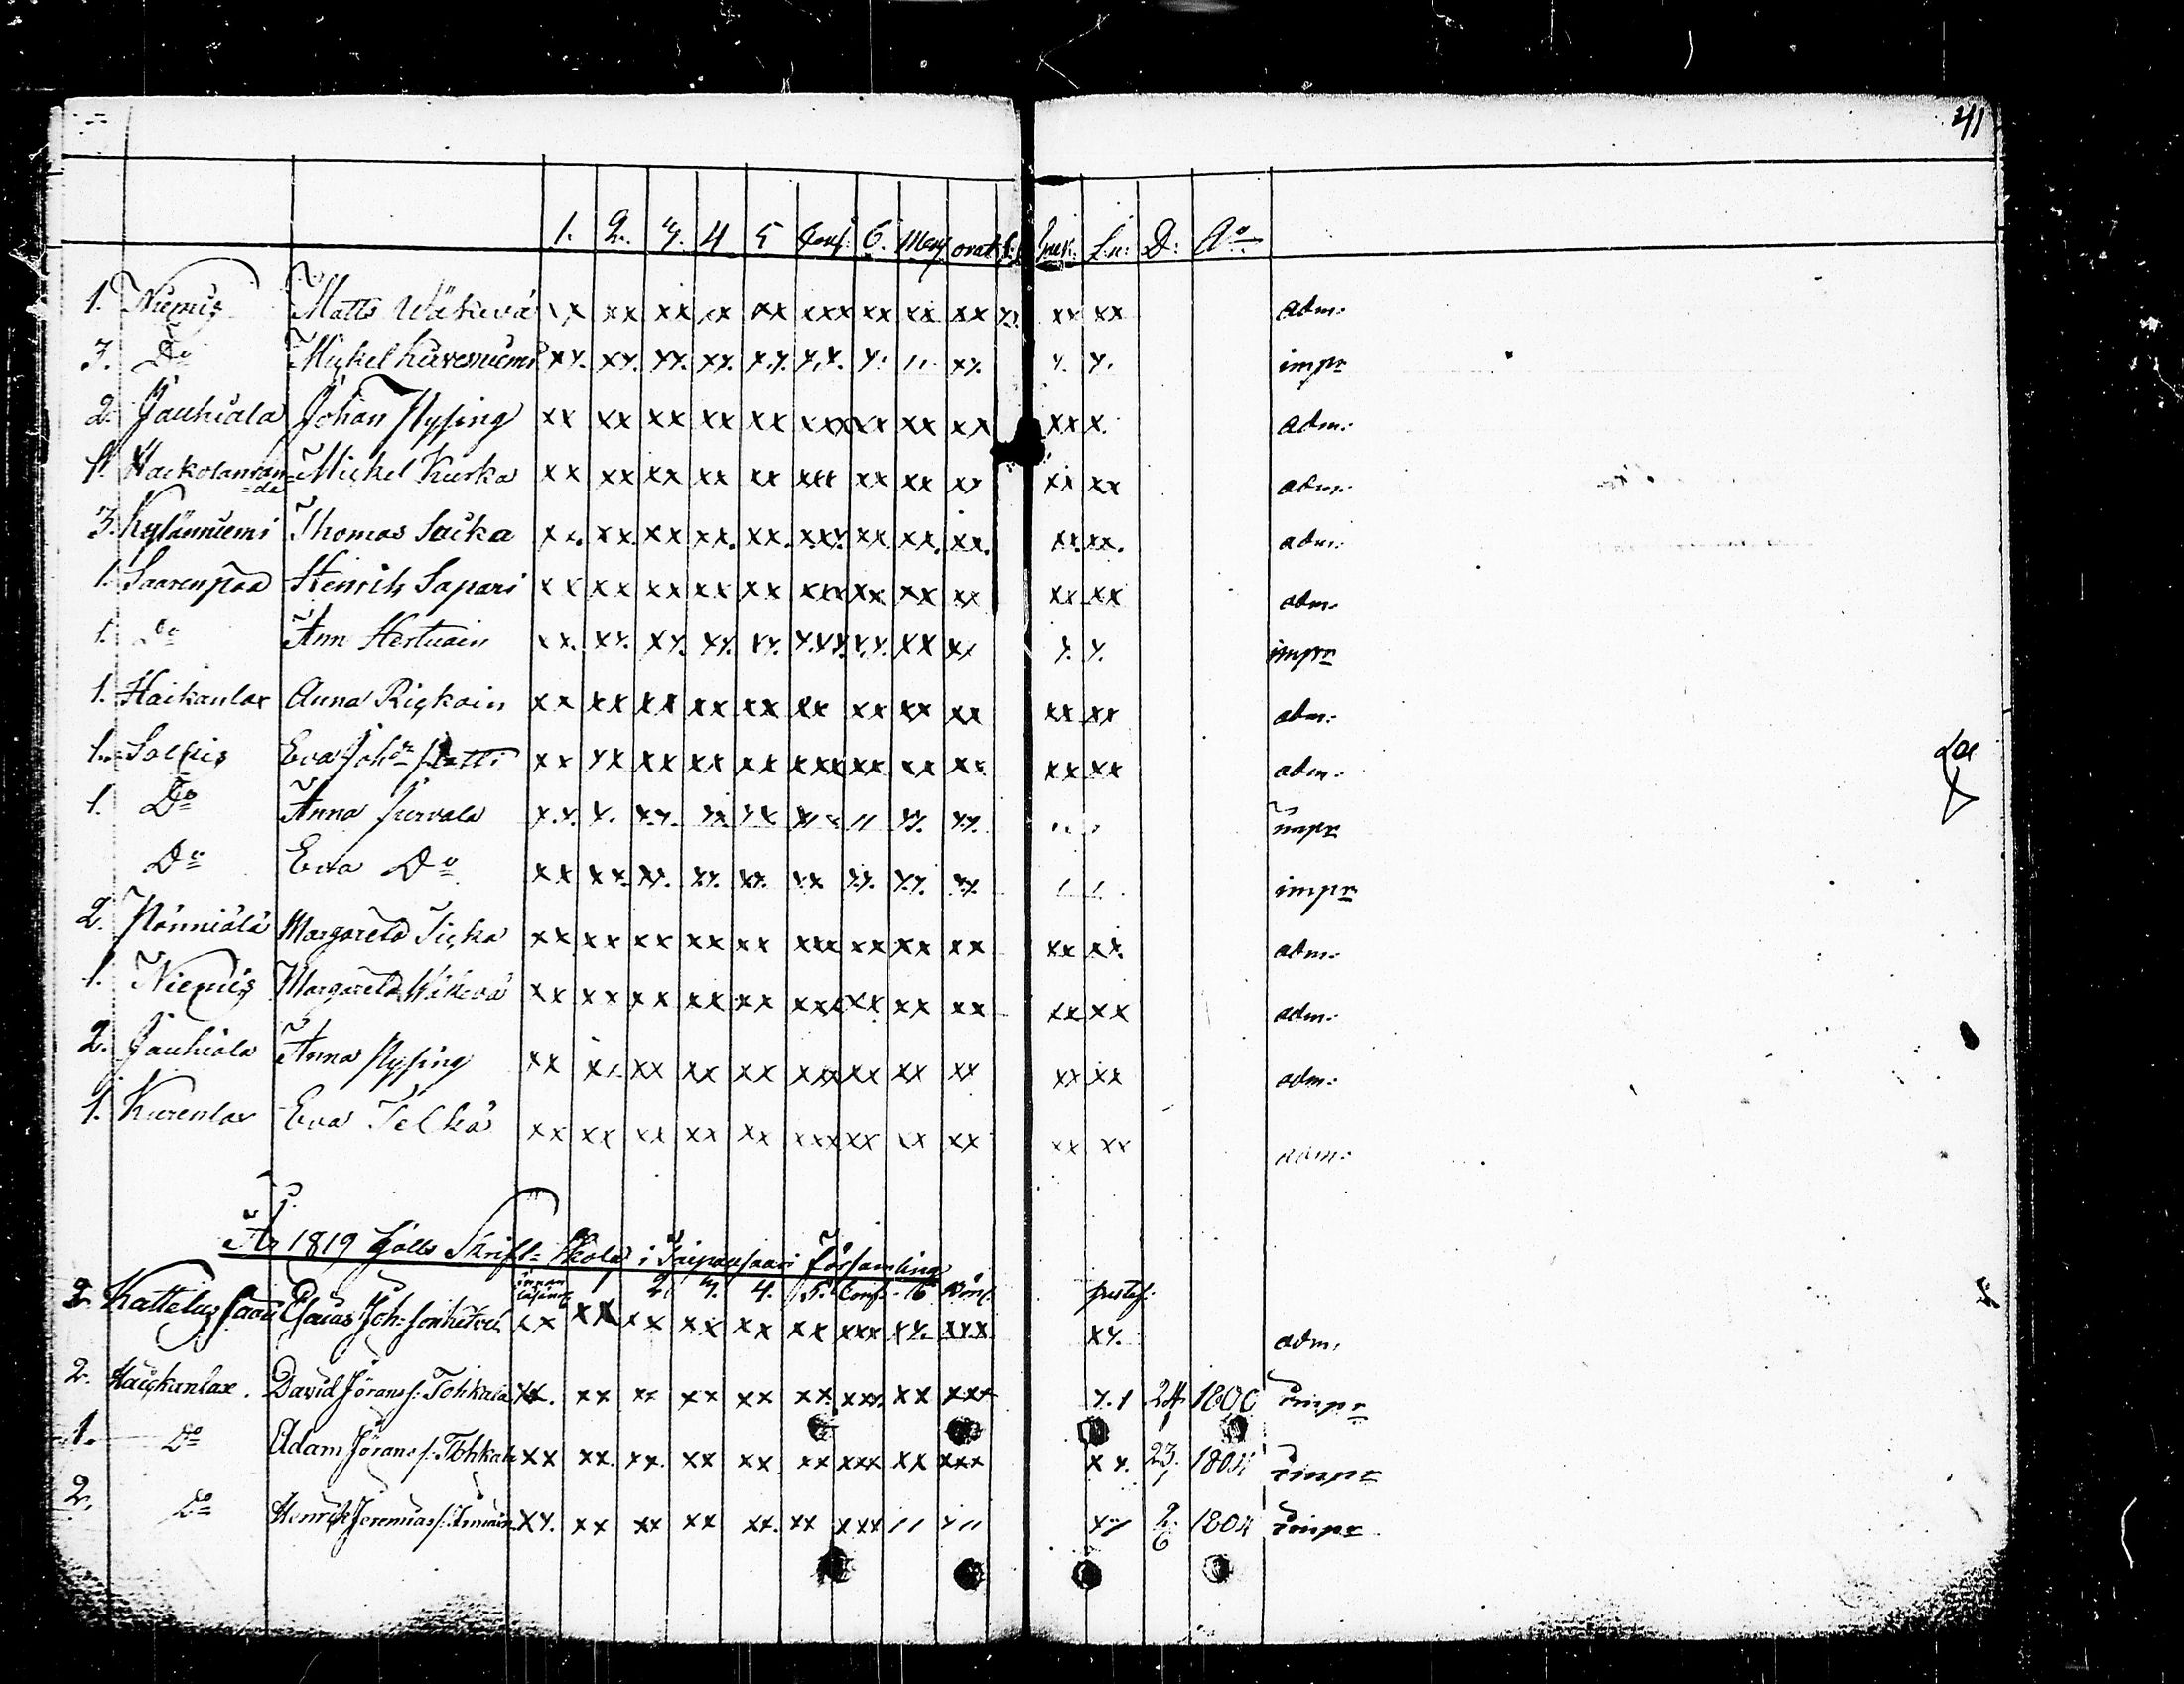 41
1. 2. 3. 4 5 Conf: 6. Mens orat S: L:n: D: Aº
1. Niemis Matts Wäkevä xx xx xx xx xx xxx xx xx xx xx xx xx adm:
3. Dº Mickel xy. xy. yy. xy. x.y. y.y. y. 11. xy. y. y. impr
2. Jauhiala Johan Nysing xx xx xx xx xx xxx xx xx xx xx x. adm:
1. Haikolanran=da Mickel Kurka xx xx xx xx xx xxx xx xx xx xx xx adm:
3. Kylänniemi Thomas Saika xx. xx. xx xx. xx. xxy. xx. xx. xx. xx. xx. adm:
1. Saarenpää Henrik Sapari xx xx xx xx xx xxx xx xx xx xx xx adm:
1. Dº Ann Hertuain xx. xy. xy. yy. yy. y.yy. y.y. xx xx y. y. impr
1. Haikanlax Anna xx xx xx xx xx xx xx xx xx xx xx adm:
1. Solkis Eva Joh:dr xx yx xx xx xx xxx xx xx xx xx xx adm:
1. Dº Anna x.y. y. x.y. 11 yy. yy. impr
Dº Eva Dº xx xy. xy. y.y. xy. yx y.y. y.y. yy. 1 1. impr
2. Pönniälä Margareta xx xx xx xx xx xxx xx xx xx xx xx. adm:
1. Niemis Margareta Wäkevä xx xx xx xx xx xxx xx xx xx xx xx adm:
2. Jauhiala Anna Nysing xx x. xx xx xx xxx xx xx xx xx xx adm:
1. Kurenlax Eva Telkä xx xx xx xx xx xxx xx xx xx xx xx adm:
År 1819 hölls Skrift=Skola i Taipalsaari Församling
innan läsning 1 2 3. 4. 5. Conf. 6
2. Esaias Joh: xx xx xx xx xx xx xxx xy. xxx xy. adm:
2. Haickanlax. David Jörans s: Tohkala xx. xx xx xx xx xx. xxx. xx xxx y.1 24 1800 impr
1. Dº Adam Jörans s: Tohkala xx xx. xx. xx xx. xx xxx xx xxx xy. 23. impr
2. Dº Henrik Jeremias s: xy. xx xx xx xx. xx xxx 11 y11 2/6 1804 impr